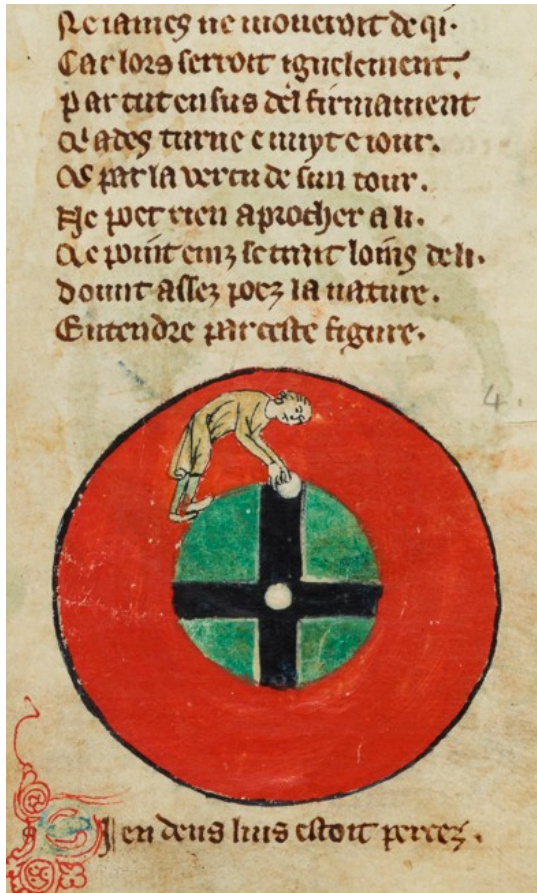 Ne iames ne moueroit de qi.
Car lors serroit iguelement.
Par tut en sus del firmament
Qe ades turne e nuyt e iour.
Qe par la vertu de sun tour.
Ne poet rien aprocher a li.
Qe point einz se trait loins de li.
Dount assez poez la nature.
Entendre par ceste figure.
4.
en deus lius estoit percez.